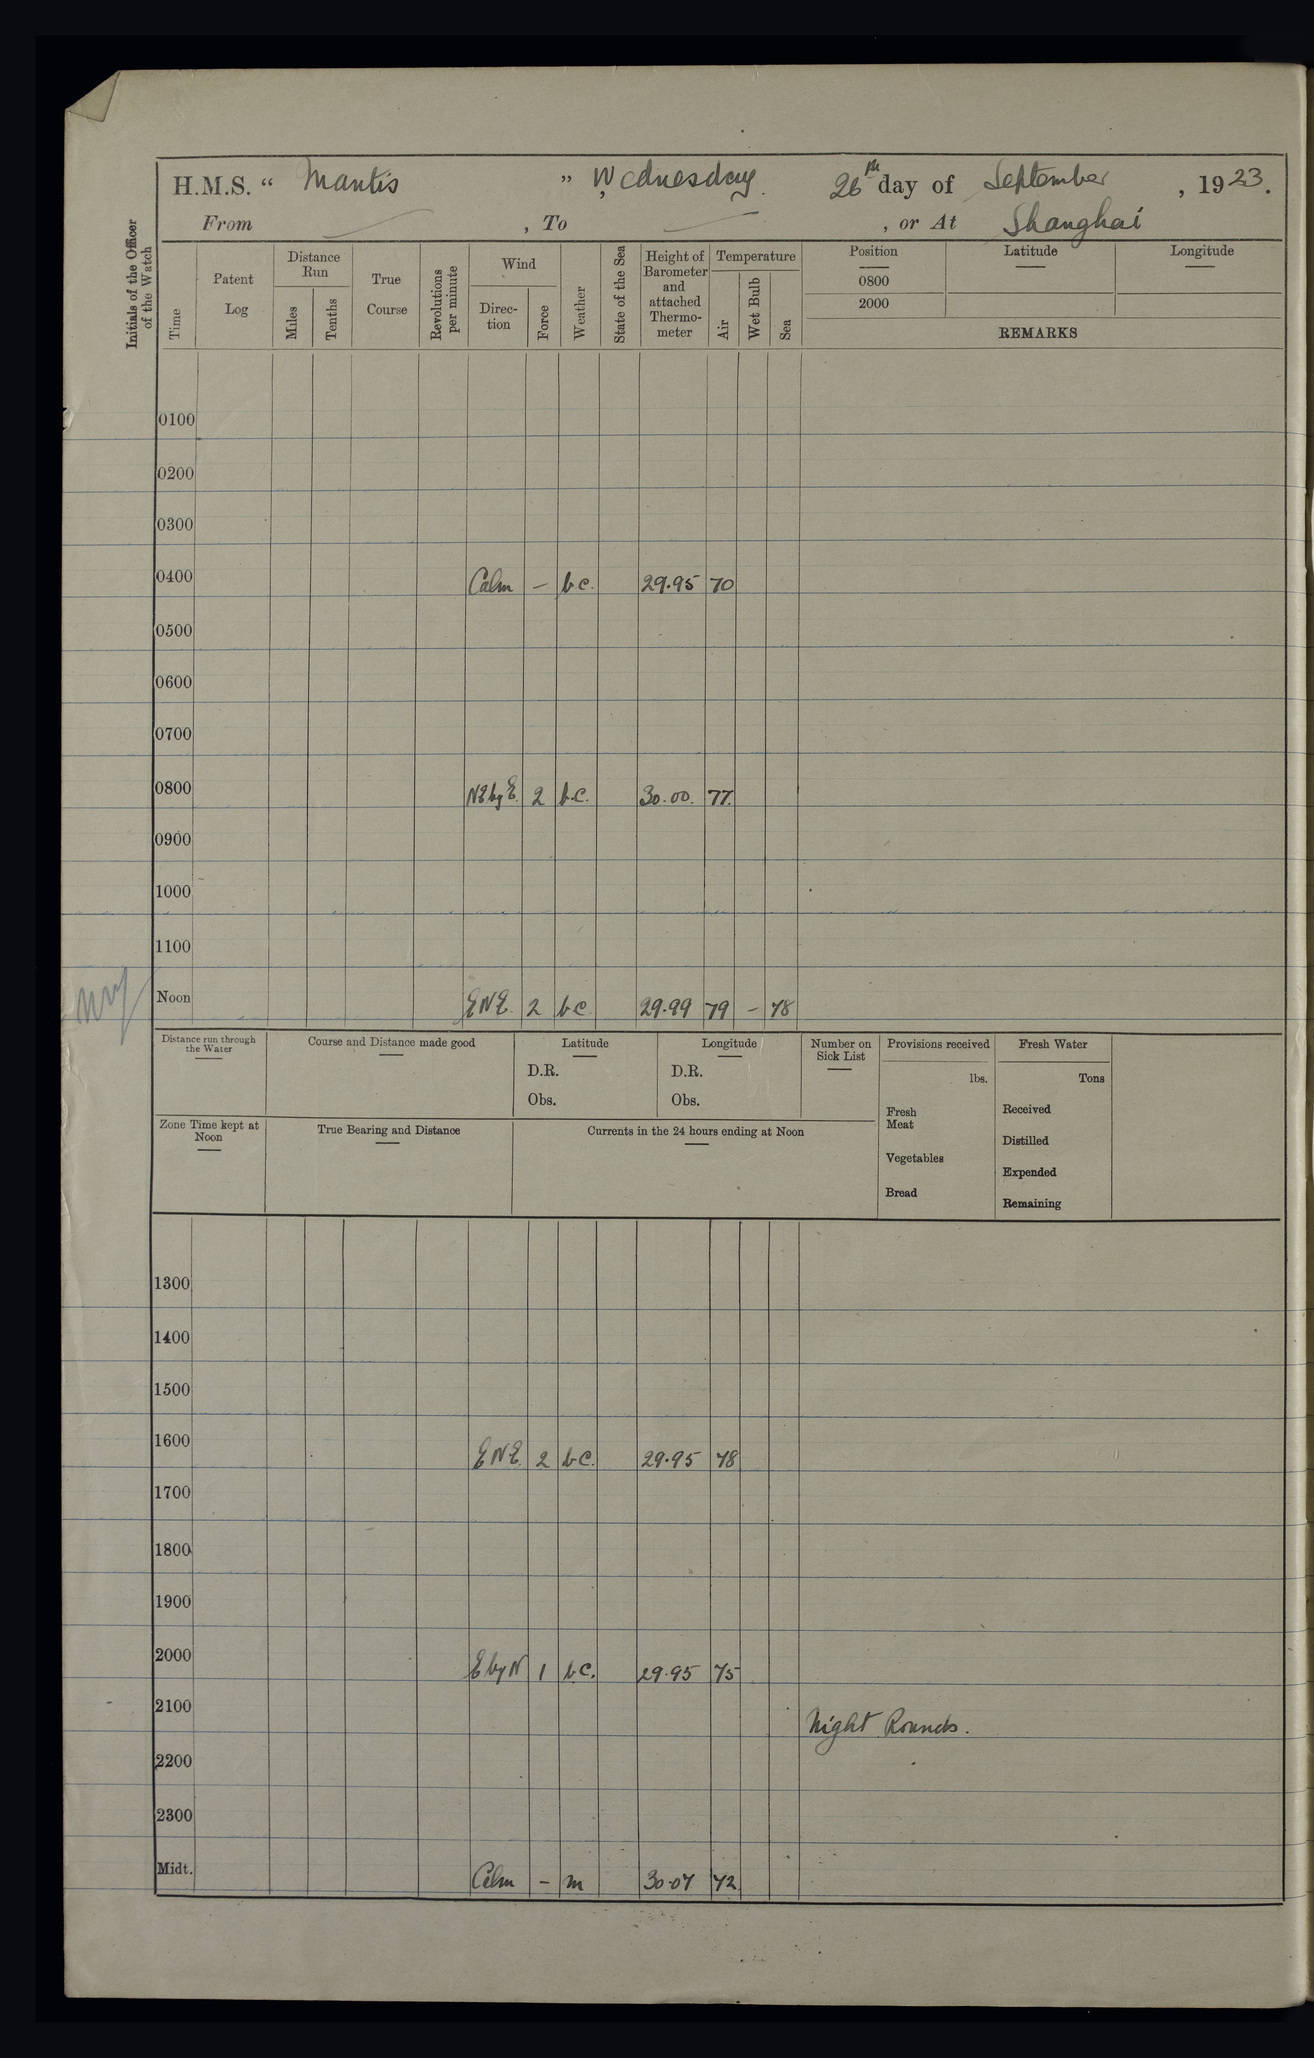 H.M.S. “ Mantis ” Wednesday. 26th day of September, 1923.
From — , To — , or At Shanghai
Initials of the Officer of the Watch
Time
Patent Log
Distance Run
Miles
Tenths
True Course
Revolutions per minute
Wind
Direc-tion
Force
Weather
State of the Sea
Height of Barometer and attached Thermo-meter
Temperature
Air
Wet Bulb
Sea
Position
0800
2000
Latitude
Longitude
REMARKS
0100
0200
0300
0400 Calm – b.c. 29.95 70
0500
0600
0700
0800 NE by E. 2 b.c. 30.00. 77.
0900
1000
1100
Noon ENE. 2 bc 29.99 79 – 78
Distance run through the Water
Course and Distance made good
Latitude
D.R.
Obs.
Longitude
D.R.
Obs.
Number on Sick List
Provisions received
lbs.
Fresh Meat
Vegetables
Bread
Fresh Water
Tons
Received
Distilled
Expended
Remaining
Zone Time kept at Noon
True Bearing and Distance
Currents in the 24 hours ending at Noon
1300
1400
1500
1600 ENE. 2 b.c. 29.95 78
1700
1800
1900
2000 E by N 1 b.c. 29.95 75
2100 Night Rounds.
2200
2300
Midt. Calm – m 30.07 72